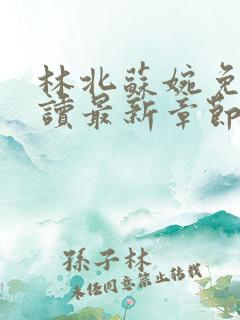 林北蘇婉免
讀最新章節
孫子林
未經同意禁止轉載